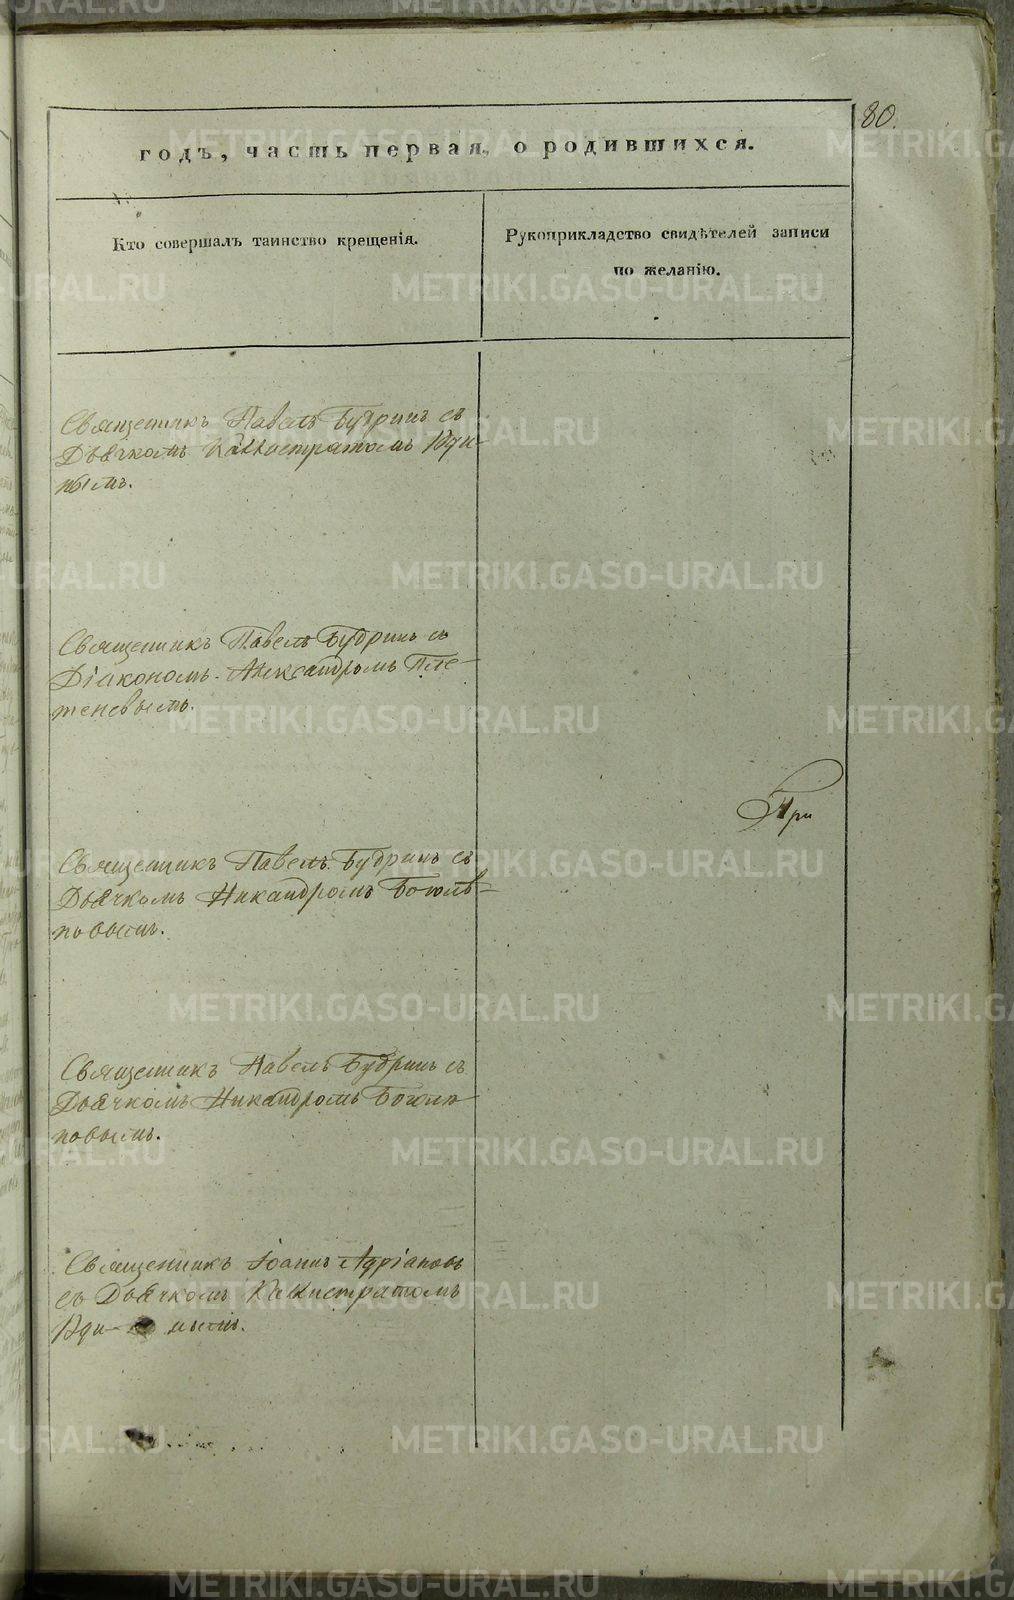 80.
годъ, часть первая, о родившихся.
Кто совершалъ таинство крещенія.
Рукоприкладство свидѣтелей записи
по желанію.
Священникъ Павелъ Будринъ съ
Дьячкомъ Каллистратомъ Юди-
нымъ.
Священникъ Павелъ Будринъ съ
Діакономъ Александромъ Пле-
теневымъ.
При
Священникъ Павелъ Будринъ съ
Дьячкомъ Никандромъ Боголѣ-
повымъ.
Священникъ Павелъ Будринъ съ
Дьячкомъ Никандромъ Боголѣ-
повымъ.
Священникъ Іоаннъ Адріановъ
съ Дьячкомъ Каллистратомъ
Юди- нымъ.
METRIKI.GASO-URAL.RU